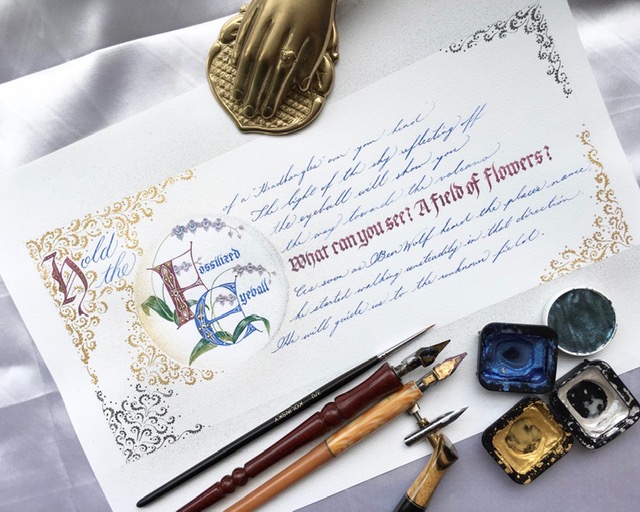 Hold
the
Fossilized
Eyeball
of a
the light of the sky reflecting off
the eyeball will show you
the way toward the volcano
What can you see? A field of flowers?
As soon as BenWolf heard the place's name
he started walking unsteadily in that direction.
He will guide us to the unknown field.
KOLINSKY